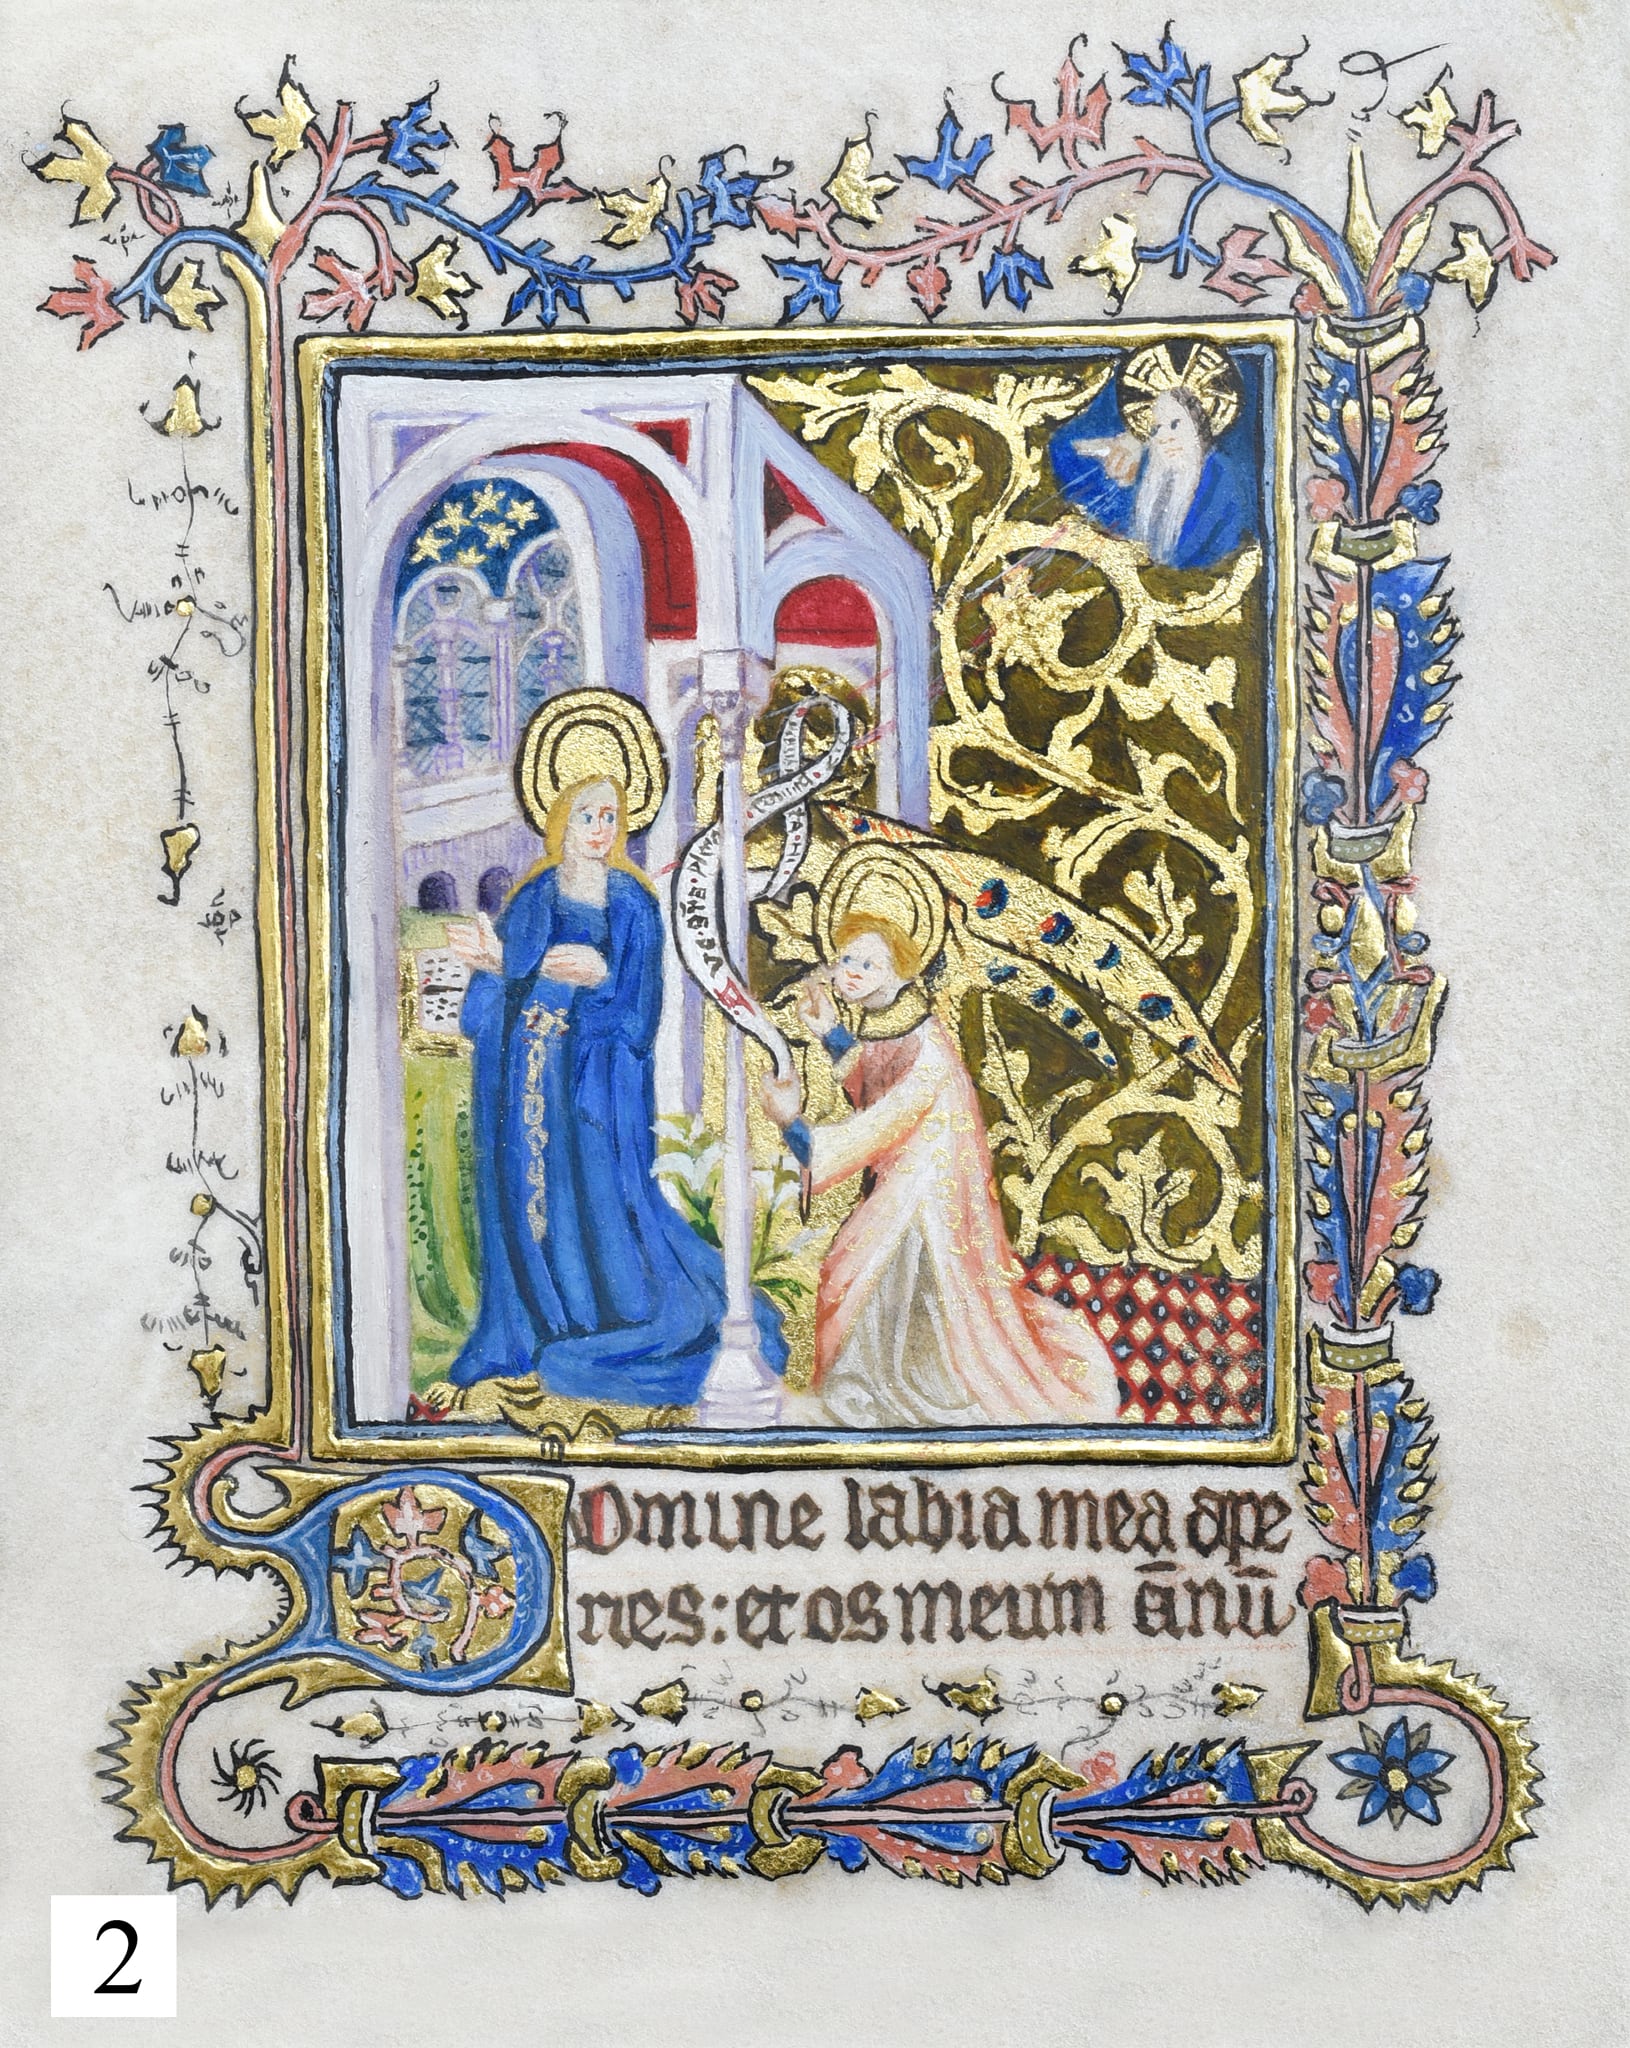 Domine labia mea ape
ries: et os meum ānū
2